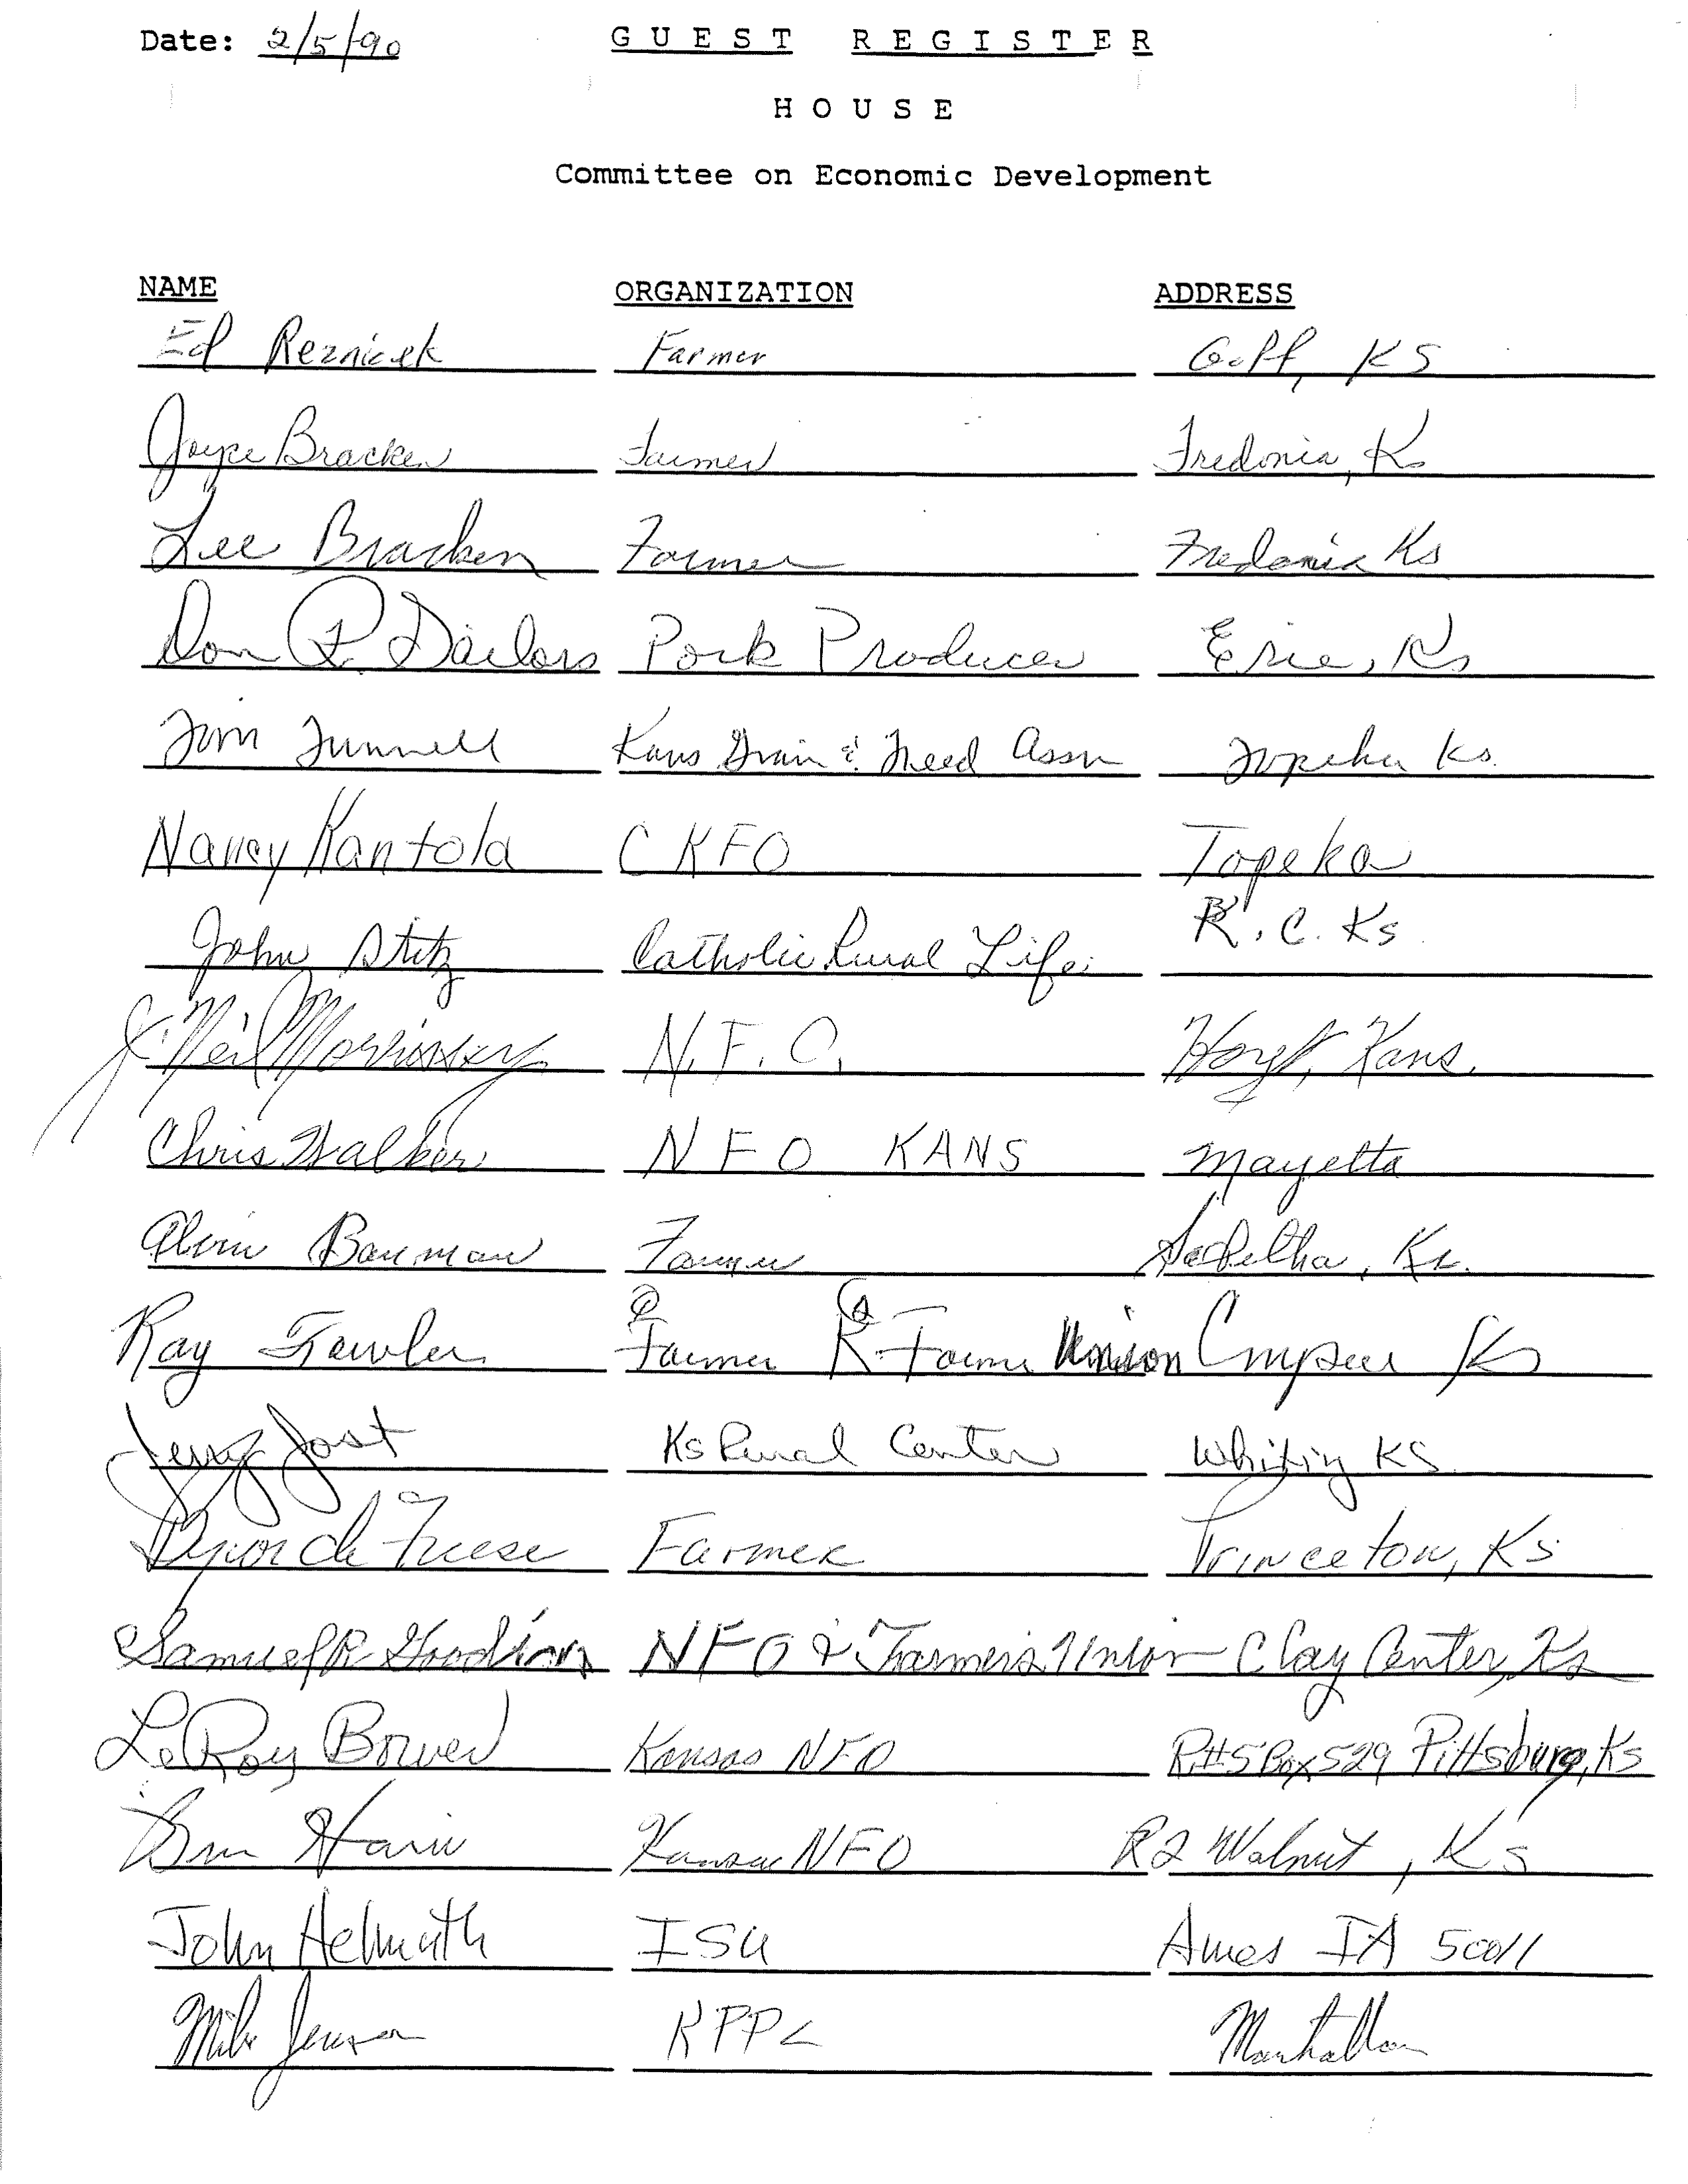 Date: 2/5/90 GUEST REGISTER
HOUSE
Committee on Economic Development
NAME ORGANIZATION ADDRESS
Ed Reznicek Farmer Goff, KS
Joyce Bracken Farmer Fredonia, K
Lee Bracken Farmer Fredonia Ks
Don P. Pork Producer Erie, Ks
Tom Tunnell Kans Grain & Feed Assn Topeka Ks.
Nancy Kantola CKFO Topeka
John Stitz Catholic Rural Life K.C. Ks
J. Neil N.F.O. Hoyt, Kans.
Chris Walker NFO KANS Mayetta
Alvin Bauman Farmer Sabetha, Ks.
Ray Fowler Farmer Union Ks
Jerry Jost Ks Rural Center Whiting KS
Farmer Princeton, Ks
Samuel R NFO & Farmers Union Clay Center, Ks
LeRoy Bower Kansas NFO R#5 Box 529 Pittsburg, Ks
Kansas NFO R2 Walnut, Ks
John Helmuth ISU Ames IA 50011
Mike Jensen KPPC Manhattan